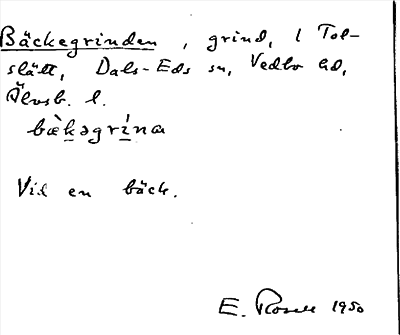 Bäckegrinden, grind, i Tol-
slätt, Dals-Eds sn, Vedbo hd,
Älvsb. l.
bæ̀kəgrína
Vid en bäck.
E. 1950